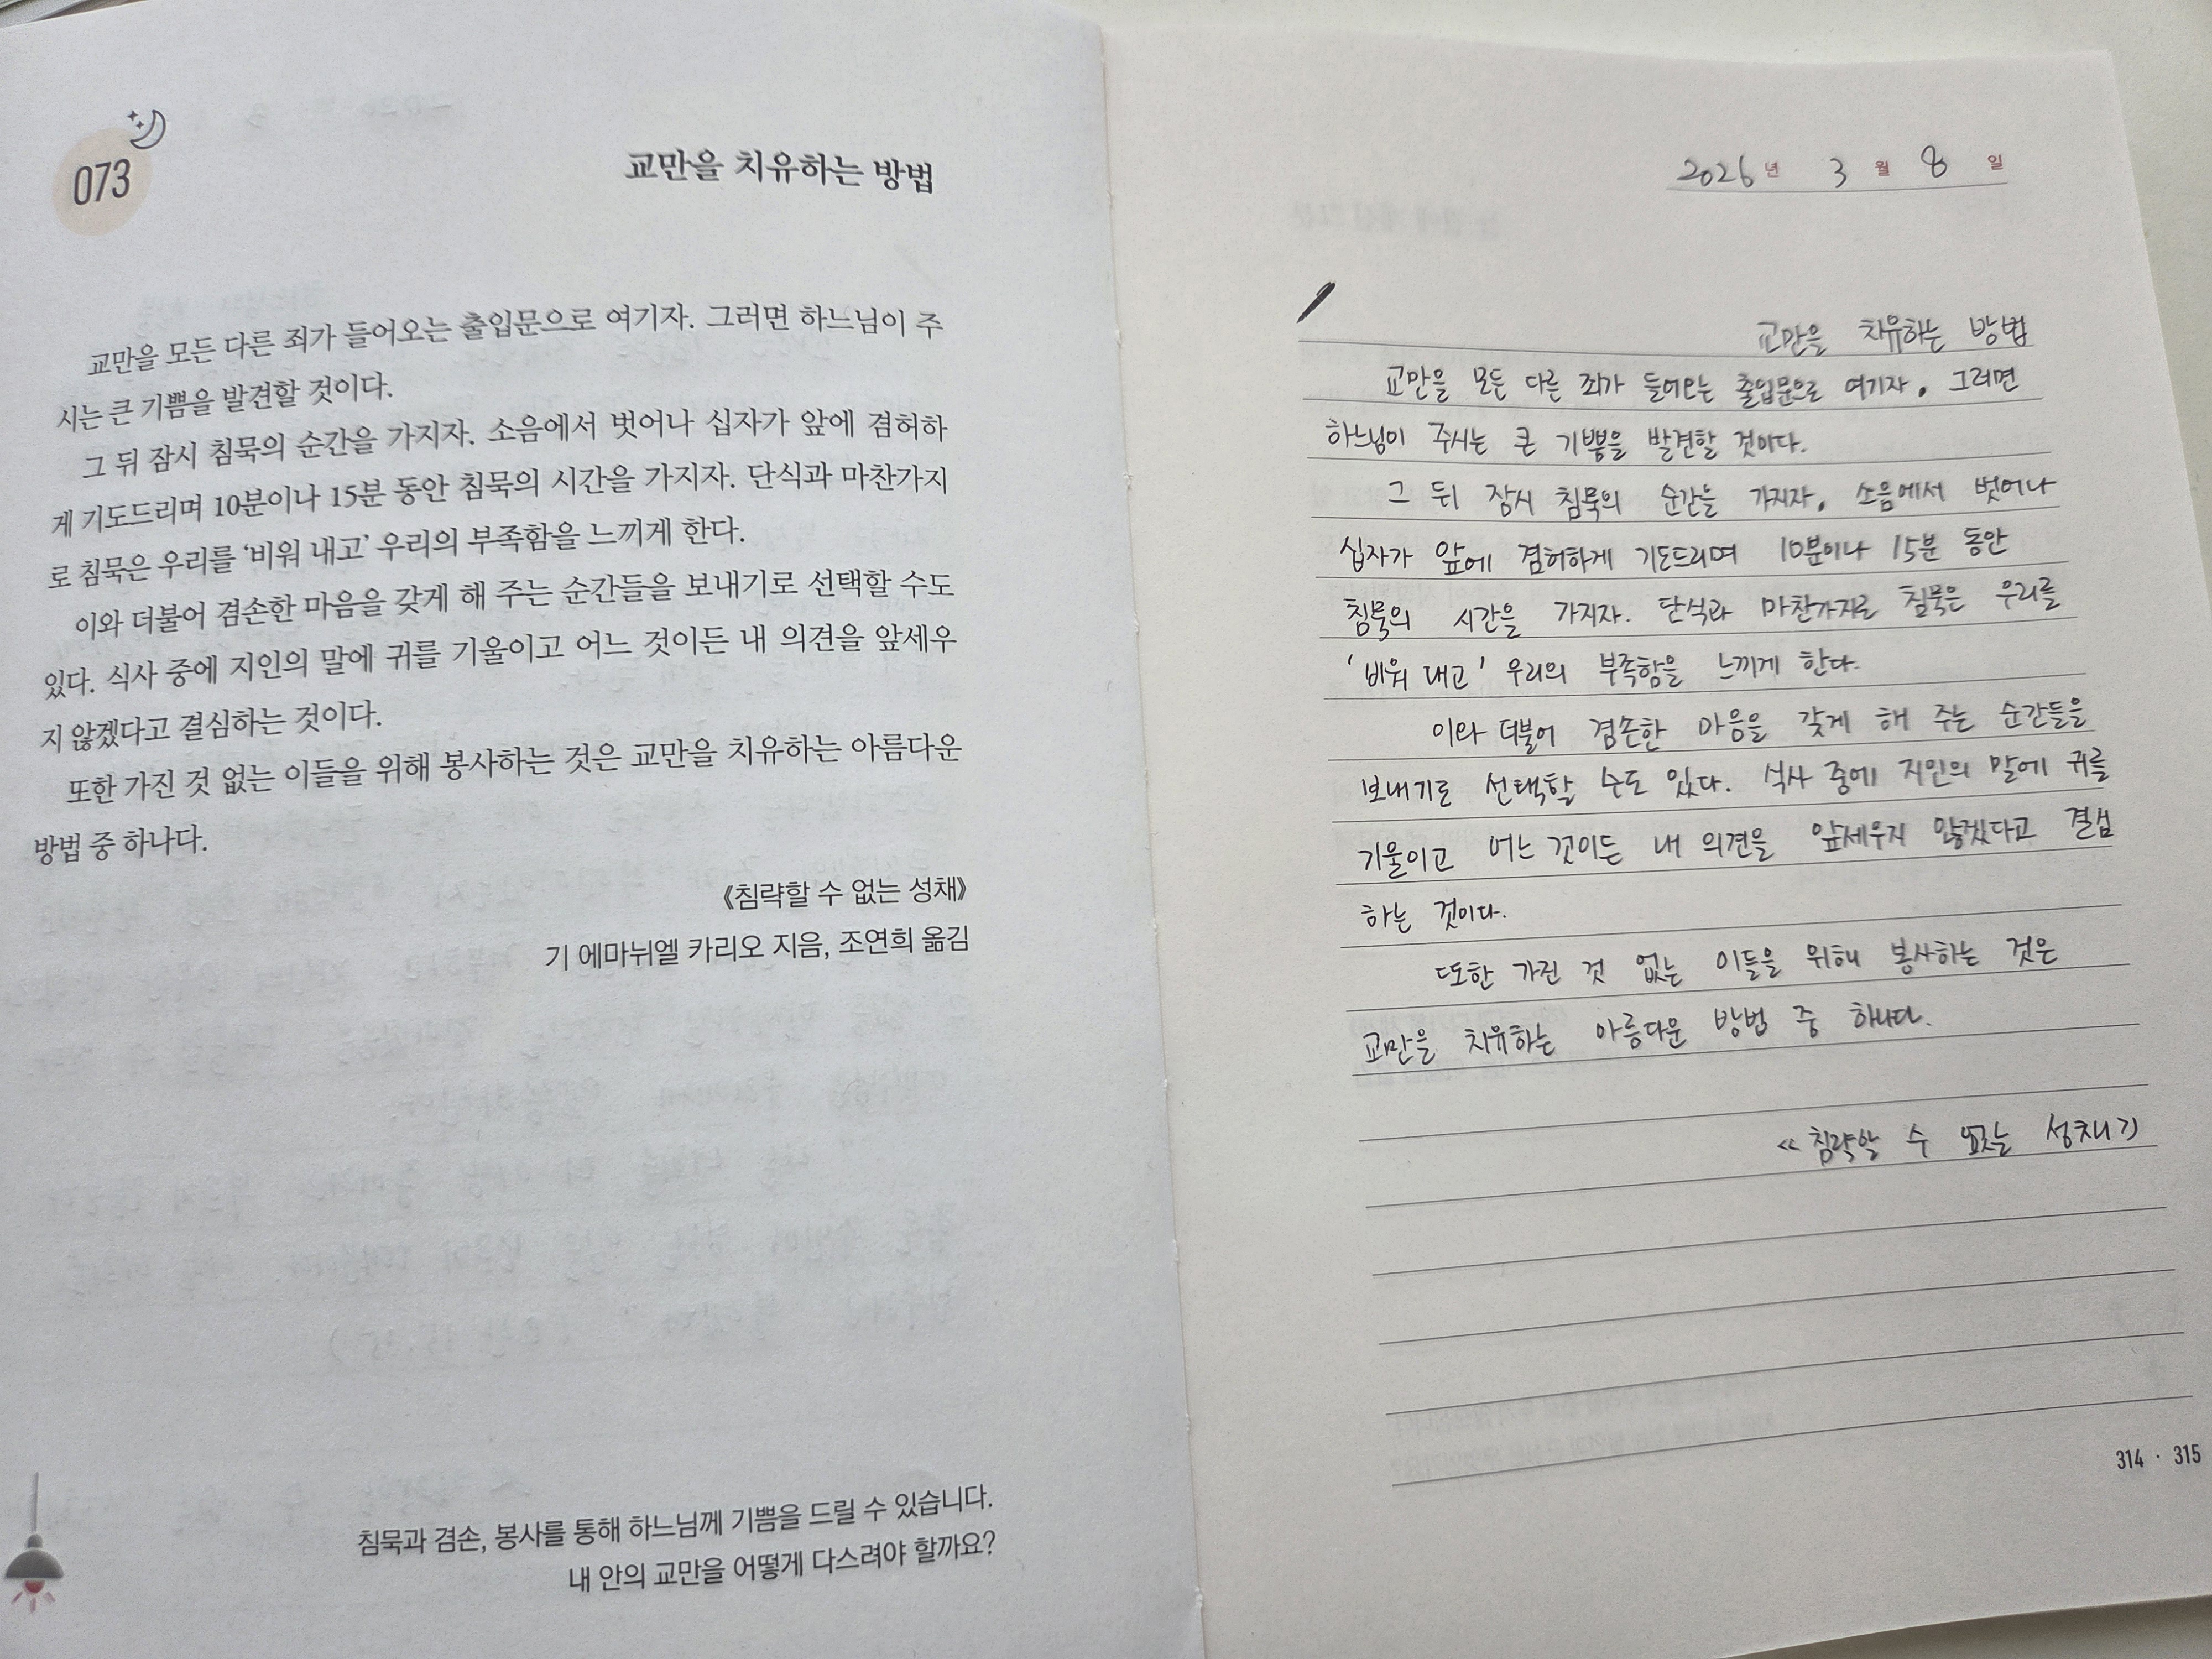 073
교만을 치유하는 방법
교만을 모든 다른 죄가 들어오는 출입문으로 여기자. 그러면 하느님이 주
시는 큰 기쁨을 발견할 것이다.
그 뒤 잠시 침묵의 순간을 가지자. 소음에서 벗어나 십자가 앞에 겸허하
게 기도드리며 10분이나 15분 동안 침묵의 시간을 가지자. 단식과 마찬가지
로 침묵은 우리를 ‘비워 내고’ 우리의 부족함을 느끼게 한다.
이와 더불어 겸손한 마음을 갖게 해 주는 순간들을 보내기로 선택할 수도
있다. 식사 중에 지인의 말에 귀를 기울이고 어느 것이든 내 의견을 앞세우
지 않겠다고 결심하는 것이다.
또한 가진 것 없는 이들을 위해 봉사하는 것은 교만을 치유하는 아름다운
방법 중 하나다.
《침략할 수 없는 성채》
기 에마뉘엘 카리오 지음, 조연희 옮김
침묵과 겸손, 봉사를 통해 하느님께 기쁨을 드릴 수 있습니다.
내 안의 교만을 어떻게 다스려야 할까요?
2026년 3월 8일
교만을 치유하는 방법
교만을 모든 다른 죄가 들어오는 출입문으로 여기자. 그러면
하느님이 주시는 큰 기쁨을 발견할 것이다.
그 뒤 잠시 침묵의 순간을 가지자. 소음에서 벗어나
십자가 앞에 겸허하게 기도드리며 10분이나 15분 동안
침묵의 시간을 가지자. 단식과 마찬가지로 침묵은 우리를
'비워 내고' 우리의 부족함을 느끼게 한다.
이와 더불어 겸손한 마음을 갖게 해 주는 순간들을
보내기로 선택할 수도 있다. 식사 중에 지인의 말에 귀를
기울이고 어느 것이든 내 의견을 앞세우지 않겠다고 결심
하는 것이다.
또한 가진 것 없는 이들을 위해 봉사하는 것은
교만을 치유하는 아름다운 방법 중 하나다.
≪침략할 수 없는 성채≫
314 · 315